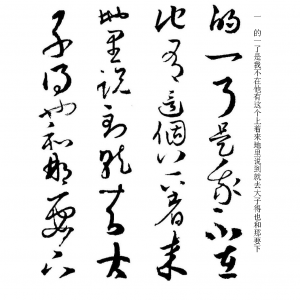 一 的一了是我不在他有这个上着来地里说到就去大子得也和那要下
的一了是我不在
他有這個上着来
地里说到就去大
子得也和那要下